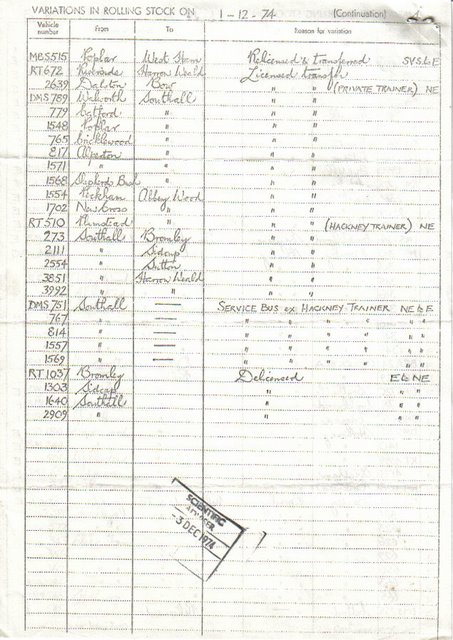 VARIATIONS IN ROLLING STOCK ON 1-12-74 (Continuation)
Vehicle number From To Reason for variation
MBS515 Poplar West Ham Relicensed & transferred SVS & E
RT672 Harrow Weald Licensed transfr
2639 Dalston Bow " " (PRIVATE TRAINER) NE
DMS789 Walworth Southall " "
779 Catford " " "
1548 Poplar " " "
765 Cricklewood " " "
817 Alperton " " "
1571 " " " "
1568 Shepherds Bush " " "
1554 Peckham Abbey Wood " "
1702 New Cross " " "
RT510 Plumstead " " " (HACKNEY TRAINER) NE
273 Southall Bromley " "
2111 " Sidcup " "
2554 " Sutton " "
3851 " Harrow Weald " "
3992 " " " "
DMS751 Southall — SERVICE BUS ex HACKNEY TRAINER NE & E
767 " — " " " " " "
814 " — " " " " " "
1557 " — " " " " " "
1569 " — " " " " " "
RT1037 Bromley Delicensed E & NE
1303 Sidcup " " "
1640 Southall " " "
2909 " " " "
SCIENTIFIC
-3 DEC 1974